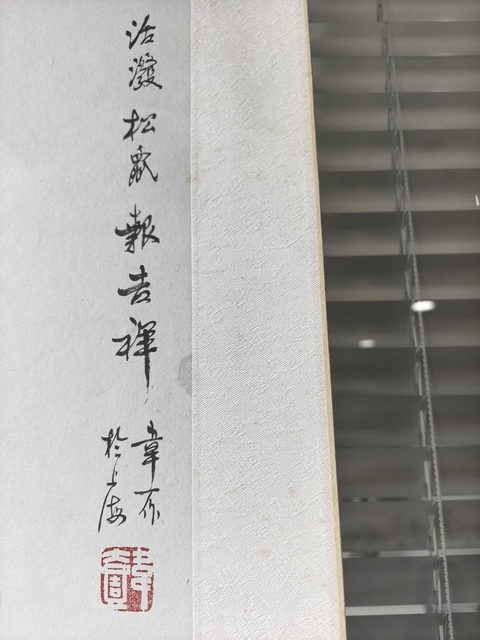 活潑松鼠報吉祥
韋
於上海